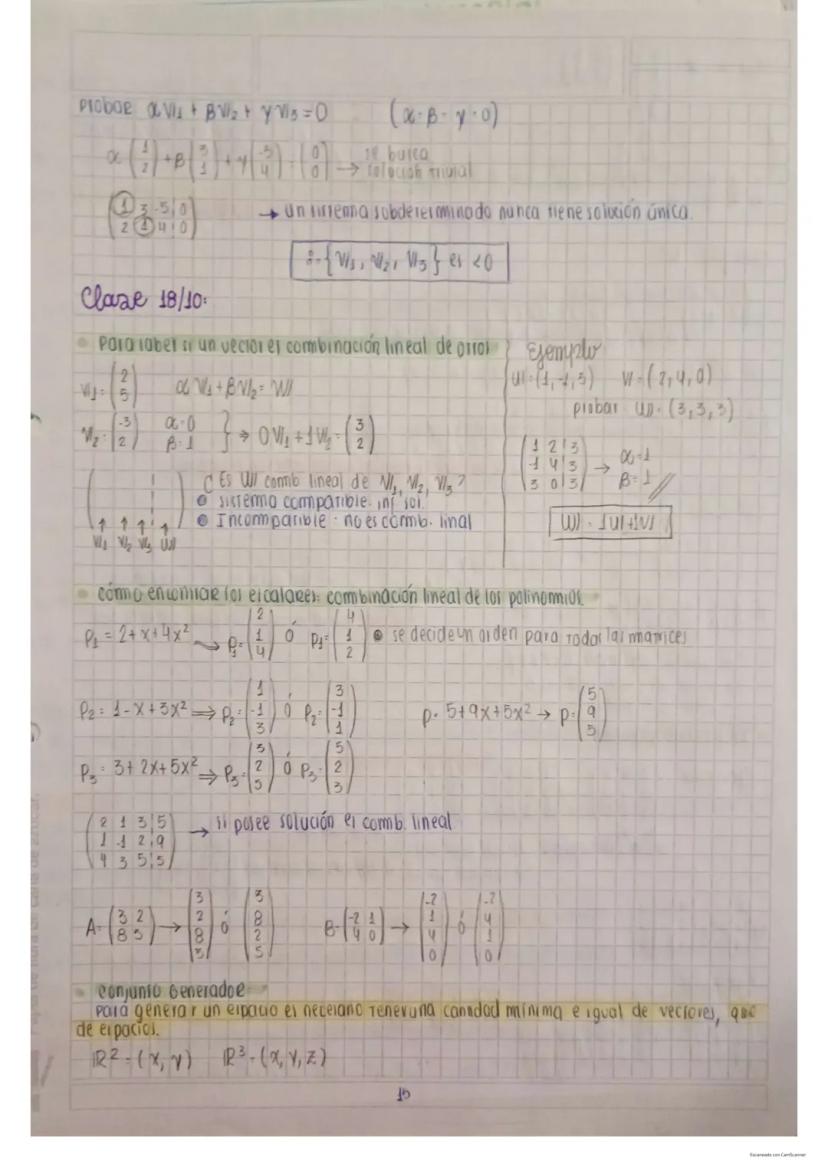 Probar αV₁ + βV₂ + γV₃ = 0 (α = β = γ = 0)
α(1 2) + β(3 1) + γ(-5 4) = (0 0) → se busca solución trivial
(1 3 -5 | 0
2 1 4 | 0) → Un sistema subdeterminado nunca tiene solución única.
S = {V₁, V₂, V₃} es LD
Clase 18/10:
Para saber si un vector es combinación lineal de otros
V₁ = (2 5) αV₁ + βV₂ = W
V₂ = (-3 2) α=0 β=1 } ⇒ 0V₁ + 1V₂ = (-3 2)
¿Es W comb lineal de V₁, V₂, V₃?
sistema compatible. inf sol.
Incompatible = no es comb. linal
V₁ V₂ V₃ W
Ejemplo
U = (1, -1, 3) V = (2, 4, 0)
probar W = (3, 3, 3)
(1 2 | 3
-1 4 | 3
3 0 | 3) → α=1 β=1
W = 1U + 1V
cómo encontrar los escalares: combinación lineal de los polinomios.
P₁ = 2+x+4x² → P₁ = (2 1 4) ó P₁ = (4 1 2) se decide un orden para todas las matrices
P₂ = 1-x+3x² ⇒ P₂ = (1 -1 3) ó P₂ = (3 -1 1) P = 5+9x+5x² → P = (5 9 5)
P₃ = 3+2x+5x² ⇒ P₃ = (3 2 5) ó P₃ = (5 2 3)
(2 1 3 | 5
1 -1 2 | 9
4 3 5 | 5) → si posee solución es comb. lineal
A = (3 2
8 5) → (3 2 8 5) ó (3 8 2 5) B = (-2 1
4 0) → (-2 1 4 0) ó (-2 4 1 0)
Conjunto Generador
Para generar un espacio es necesario tener una cantidad mínima e igual de vectores, que
de espacios.
R² = (x, y) R³ = (x, y, z)
15
Escaneado con CamScanner